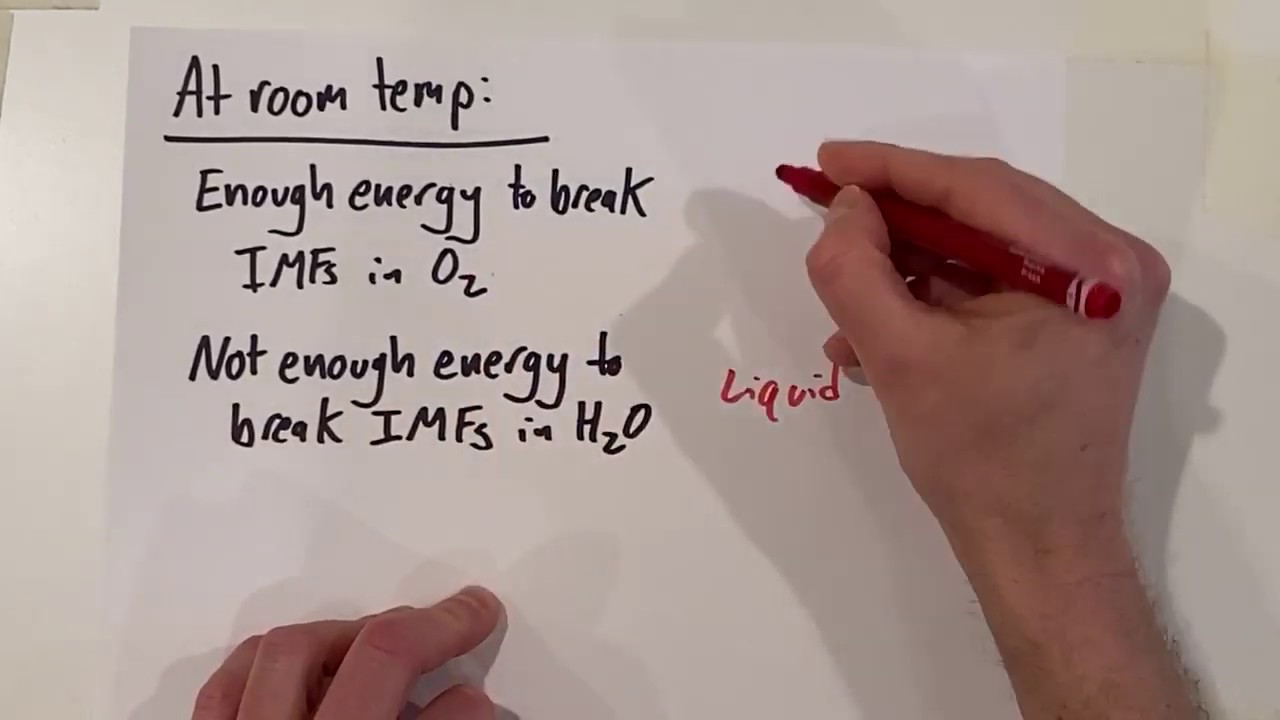 At room temp:
Enough energy to break
IMFs in O₂
Not enough energy to
break IMFs in H₂O
Liquid